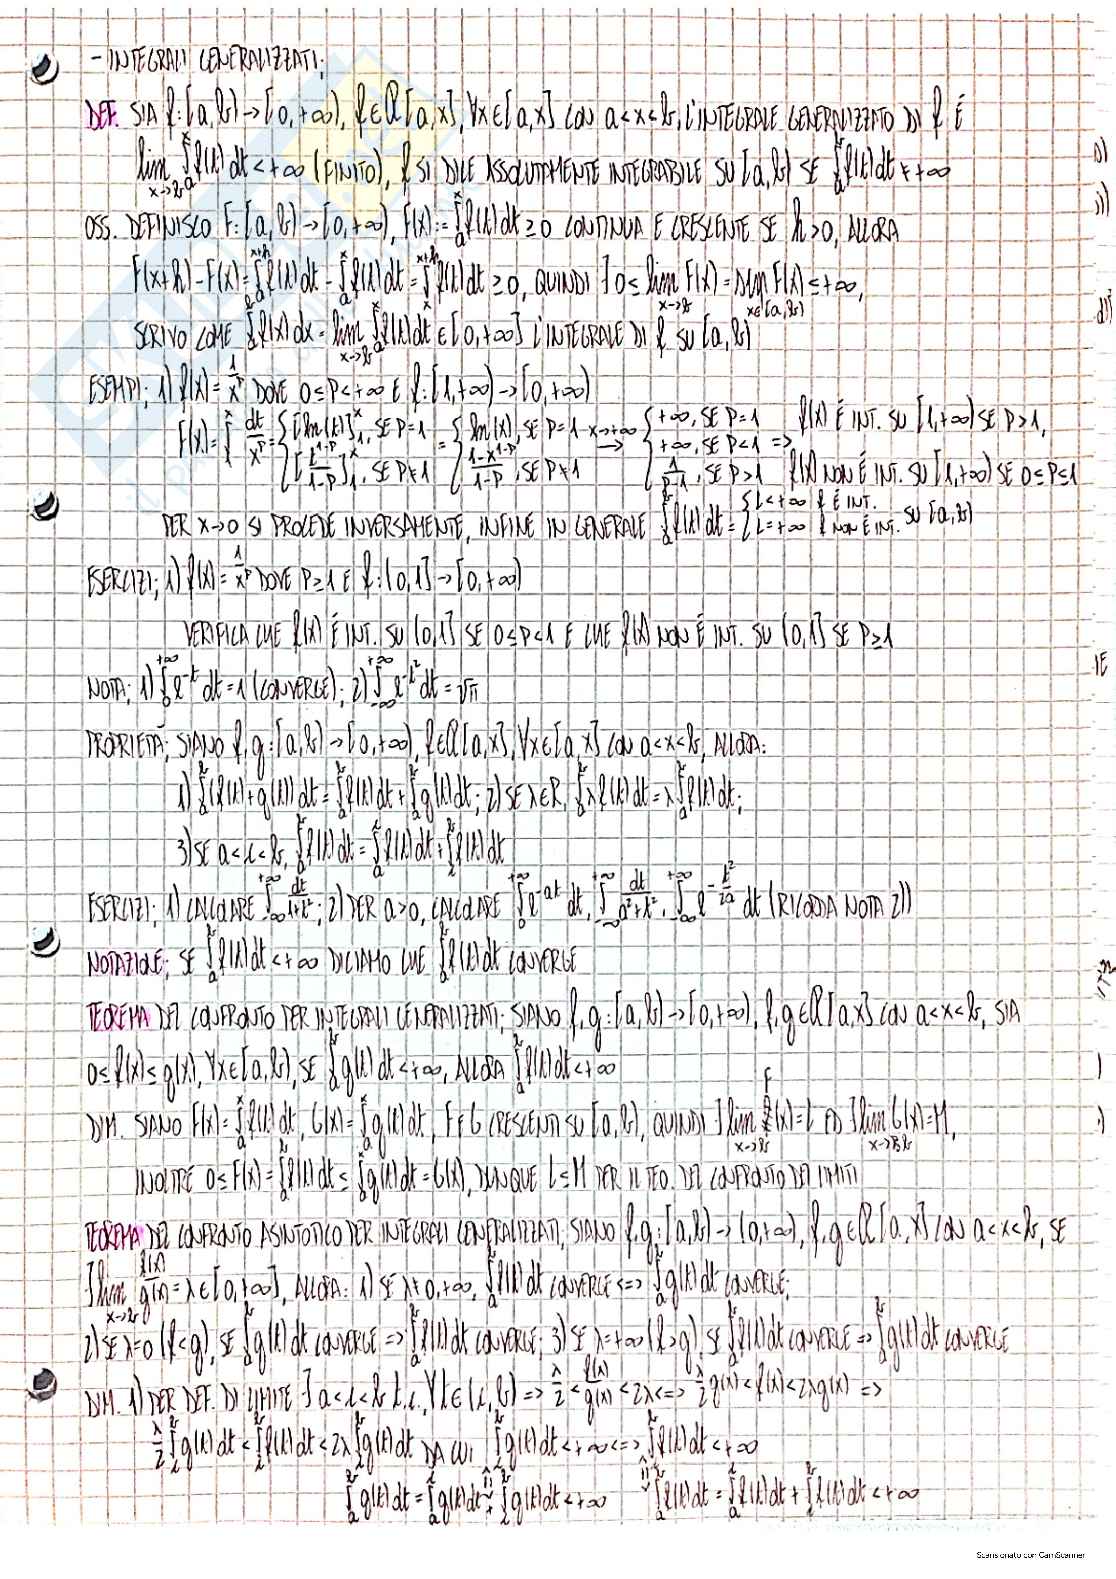 - INTEGRALI GENERALIZZATI;
DEF. SIA f:[a,b)→[0,+∞), f∈R[a,x], ∀x∈[a,x] CON a<x<b, L'INTEGRALE GENERALIZZATO DI f É
lim_{x→b} ∫_a^x f(t)dt<+∞ (FINITO), f SI DICE ASSOLUTAMENTE INTEGRABILE SU [a,b) SE ∫_a^x f(t)dt≠+∞
OSS. DEFINISCO F:[a,b)→[0,+∞), F(x):=∫_a^x f(t)dt≥0 CONTINUA E CRESCENTE SE h>0, ALLORA
F(x+h)-F(x)=∫_a^{x+h} f(t)dt-∫_a^x f(t)dt=∫_x^{x+h} f(t)dt≥0, QUINDI ∃ 0≤lim_{x→b} F(x)=sup_{x∈[a,b)} F(x)≤+∞,
SCRIVO COME ∫_a^b f(x)dx=lim_{x→b} ∫_a^x f(t)dt∈[0,+∞] L'INTEGRALE DI f SU [a,b)
ESEMPI; 1) f(x)=1/x^p DOVE 0≤p<+∞ E f:[1,+∞)→[0,+∞)
F(x)=∫_1^x dt/x^p={[ln(t)]_1^x, SE P=1; [t^{1-p}/(1-p)]_1^x, SE P≠1}={ln(x), SE P=1; (1-x^{1-p})/(1-p), SE P≠1} x→+∞ → {+∞, SE P=1; +∞, SE P<1; 1/(p-1), SE P>1} => f(x) É INT. SU [1,+∞) SE P>1, f(x) NON É INT. SU [1,+∞) SE 0≤P≤1
PER x→0 SI PROCEDE INVERSAMENTE, INFINE IN GENERALE ∫_a^b f(t)dt={L<+∞ f É INT.; L=+∞ f NON É INT.} SU [a,b)
ESERCIZI; 1) f(x)=1/x^p DOVE P≥1 E f:(0,1]→[0,+∞)
VERIFICA CHE f(x) É INT. SU (0,1] SE 0≤P<1 E CHE f(x) NON É INT. SU (0,1] SE P≥1
NOTA; 1) ∫_0^{+∞} e^{-t} dt=1 (CONVERGE); 2) ∫_{-∞}^{+∞} e^{-t²} dt=√π
PROPRIETÀ; SIANO f,g:[a,b)→[0,+∞), f∈R[a,x], ∀x∈[a,x] CON a<x<b, ALLORA:
1) ∫_a^b (f(t)+g(t))dt=∫_a^b f(t)dt+∫_a^b g(t)dt; 2) SE λ∈R, ∫_a^b λf(t)dt=λ∫_a^b f(t)dt;
3) SE a<c<b, ∫_a^b f(t)dt=∫_a^c f(t)dt+∫_c^b f(t)dt
ESERCIZI; 1) CALCOLARE ∫_{-∞}^{+∞} dt/(1+t²); 2) PER a>0, CALCOLARE ∫_0^{+∞} e^{-at} dt, ∫_{-∞}^{+∞} dt/(a²+t²), ∫_{-∞}^{+∞} e^{-t²/2a} dt (RICORDA NOTA 2))
NOTAZIONE; SE ∫_a^b f(t)dt<+∞ DICIAMO CHE ∫_a^b f(t)dt CONVERGE
TEOREMA DEL CONFRONTO PER INTEGRALI GENERALIZZATI; SIANO f,g:[a,b)→[0,+∞), f,g∈R[a,x] CON a<x<b, SIA
0≤f(x)≤g(x), ∀x∈[a,b), SE ∫_a^b g(t)dt<+∞, ALLORA ∫_a^b f(t)dt<+∞
DIM. SIANO F(x)=∫_a^x f(t)dt, G(x)=∫_a^x g(t)dt, F E G CRESCENTI SU [a,b), QUINDI ∃lim_{x→b} F(x)=L ED ∃lim_{x→b} G(x)=M,
INOLTRE 0≤F(x)=∫_a^b f(t)dt≤∫_a^x g(t)dt=G(x), DUNQUE L≤M PER IL TEO. DEL CONFRONTO DEI LIMITI
TEOREMA DEL CONFRONTO ASINTOTICO PER INTEGRALI GENERALIZZATI; SIANO f,g:[a,b)→(0,+∞), f,g∈R[a,x] CON a<x<b, SE
∃lim_{x→b} f(x)/g(x)=λ∈[0,+∞], ALLORA: 1) SE λ≠0,+∞, ∫_a^b f(t)dt CONVERGE <=> ∫_a^b g(t)dt CONVERGE;
2) SE λ=0 (f<g), SE ∫_a^b g(t)dt CONVERGE => ∫_a^b f(t)dt CONVERGE; 3) SE λ=+∞ (f>g), SE ∫_a^b f(t)dt CONVERGE => ∫_a^b g(t)dt CONVERGE
DIM. 1) PER DEF. DI LIMITE ∃ a<c<b t.c. ∀t∈(c,b) => λ/2<f(x)/g(x)<2λ <=> λ/2 g(x)<f(x)<2λg(x) =>
λ/2 ∫_c^b g(t)dt<∫_c^b f(t)dt<2λ∫_c^b g(t)dt DA CUI ∫_c^b g(t)dt<+∞ <=> ∫_c^b f(t)dt<+∞
∫_a^b g(t)dt=∫_a^c g(t)dt+∫_c^b g(t)dt<+∞ ∫_a^b f(t)dt=∫_a^c f(t)dt+∫_c^b f(t)dt<+∞
Scansionato con CamScanner